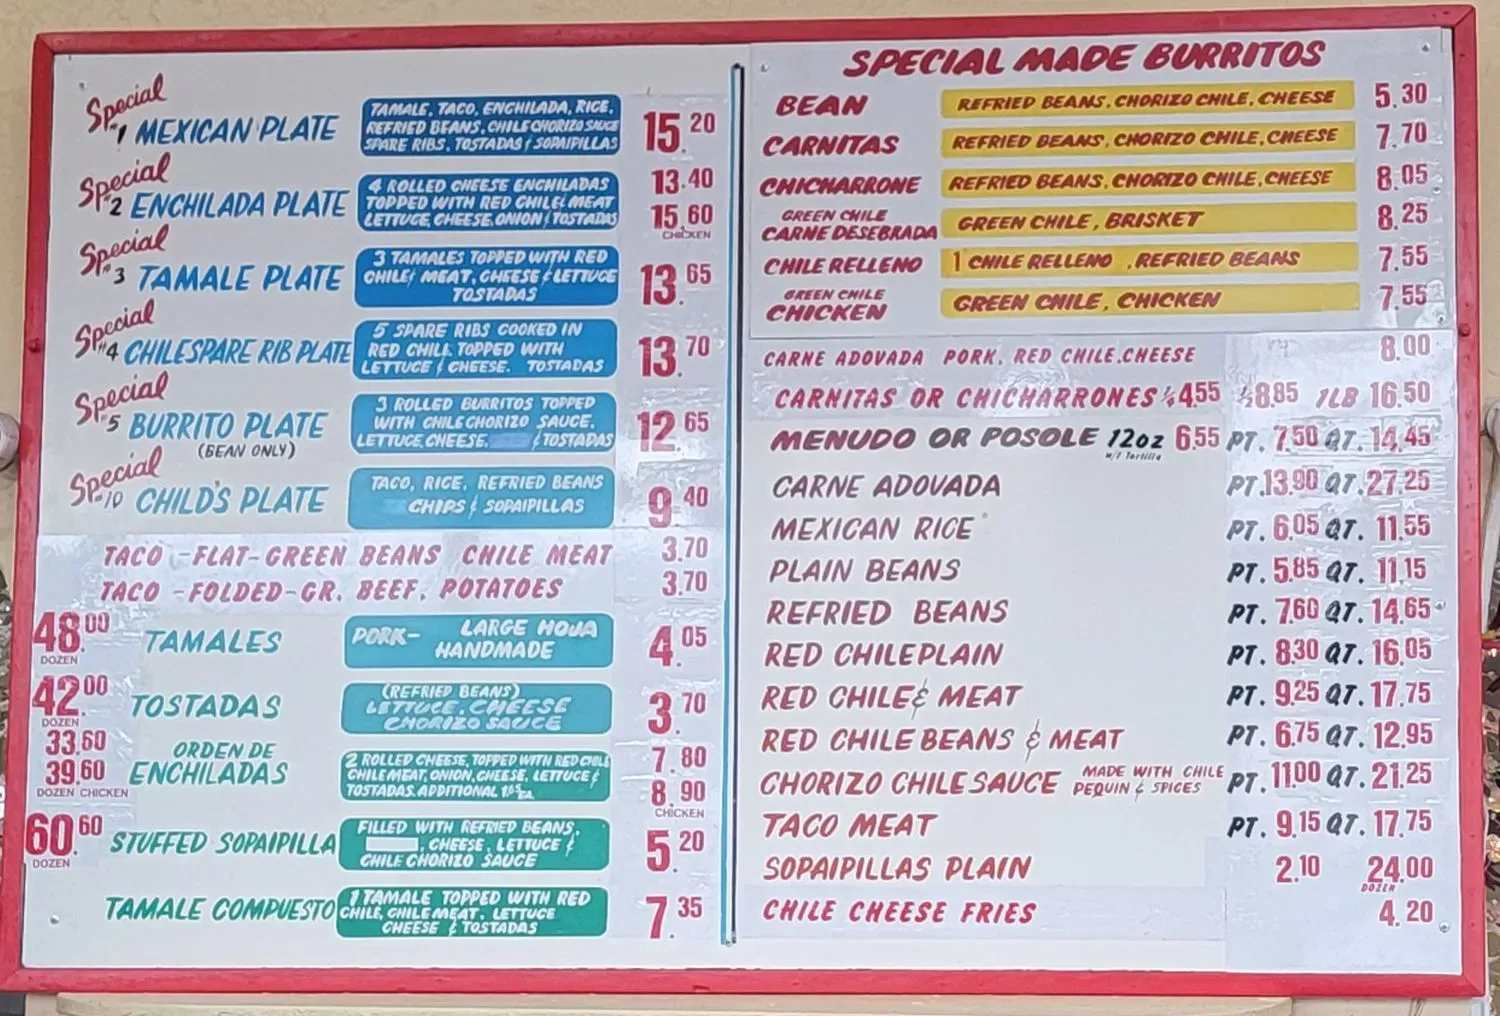 Special #1 MEXICAN PLATE
TAMALE, TACO, ENCHILADA, RICE,
REFRIED BEANS, CHILE CHORIZO SAUCE
SPARE RIBS, TOSTADAS & SOPAIPILLAS
15.20
Special #2 ENCHILADA PLATE
4 ROLLED CHEESE ENCHILADAS
TOPPED WITH RED CHILE & MEAT
LETTUCE, CHEESE, ONION & TOSTADAS
13.40
15.60
CHICKEN
Special #3 TAMALE PLATE
3 TAMALES TOPPED WITH RED
CHILE & MEAT, CHEESE & LETTUCE
TOSTADAS
13.65
Special #4 CHILE SPARE RIB PLATE
5 SPARE RIBS COOKED IN
RED CHILE TOPPED WITH
LETTUCE & CHEESE. TOSTADAS
13.70
Special #5 BURRITO PLATE
(BEAN ONLY)
3 ROLLED BURRITOS TOPPED
WITH CHILE CHORIZO SAUCE.
LETTUCE, CHEESE, & TOSTADAS
12.65
Special #10 CHILD'S PLATE
TACO, RICE, REFRIED BEANS
CHIPS & SOPAIPILLAS
9.40
TACO -FLAT-GREEN BEANS CHILE MEAT 3.70
TACO -FOLDED-GR. BEEF, POTATOES 3.70
48.00
DOZEN
TAMALES
PORK- LARGE HOJA
HANDMADE
4.05
42.00
DOZEN
TOSTADAS
(REFRIED BEANS)
LETTUCE, CHEESE
CHORIZO SAUCE
3.70
33.60
39.60
DOZEN CHICKEN
ORDEN DE
ENCHILADAS
2 ROLLED CHEESE, TOPPED WITH RED CHILE
CHILE MEAT, ONION, CHEESE, LETTUCE &
TOSTADAS. ADDITIONAL 1.65 EA.
7.80
8.90
CHICKEN
60.60
DOZEN
STUFFED SOPAIPILLA
FILLED WITH REFRIED BEANS,
, CHEESE, LETTUCE &
CHILE CHORIZO SAUCE
5.20
TAMALE COMPUESTO
1 TAMALE TOPPED WITH RED
CHILE, CHILE MEAT, LETTUCE
CHEESE & TOSTADAS
7.35
SPECIAL MADE BURRITOS
BEAN REFRIED BEANS, CHORIZO CHILE, CHEESE 5.30
CARNITAS REFRIED BEANS, CHORIZO CHILE, CHEESE 7.70
CHICHARRONE REFRIED BEANS, CHORIZO CHILE, CHEESE 8.05
GREEN CHILE
CARNE DESEBRADA GREEN CHILE, BRISKET 8.25
CHILE RELLENO 1 CHILE RELLENO , REFRIED BEANS 7.55
GREEN CHILE
CHICKEN GREEN CHILE, CHICKEN 7.55
CARNE ADOVADA PORK, RED CHILE, CHEESE 8.00
CARNITAS OR CHICHARRONES ¼ 4.55 ½ 8.85 1LB 16.50
MENUDO OR POSOLE 12oz 6.55 PT. 7.50 QT. 14.45
w/1 Tortilla
CARNE ADOVADA PT. 13.90 QT. 27.25
MEXICAN RICE PT. 6.05 QT. 11.55
PLAIN BEANS PT. 5.85 QT. 11.15
REFRIED BEANS PT. 7.60 QT. 14.65
RED CHILE PLAIN PT. 8.30 QT. 16.05
RED CHILE & MEAT PT. 9.25 QT. 17.75
RED CHILE BEANS & MEAT PT. 6.75 QT. 12.95
CHORIZO CHILE SAUCE MADE WITH CHILE
PEQUIN & SPICES
PT. 11.00 QT. 21.25
TACO MEAT PT. 9.15 QT. 17.75
SOPAIPILLAS PLAIN 2.10 24.00
DOZEN
CHILE CHEESE FRIES 4.20